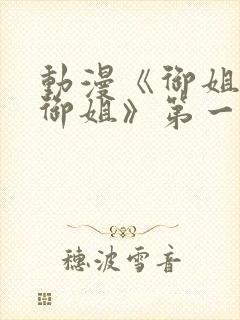 動漫《御姐
御姐》第一
穗波雪音